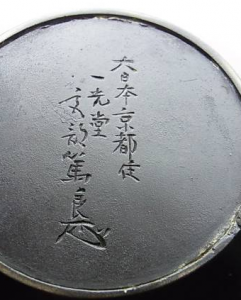 大日本京都住
一光堂
文部篤良